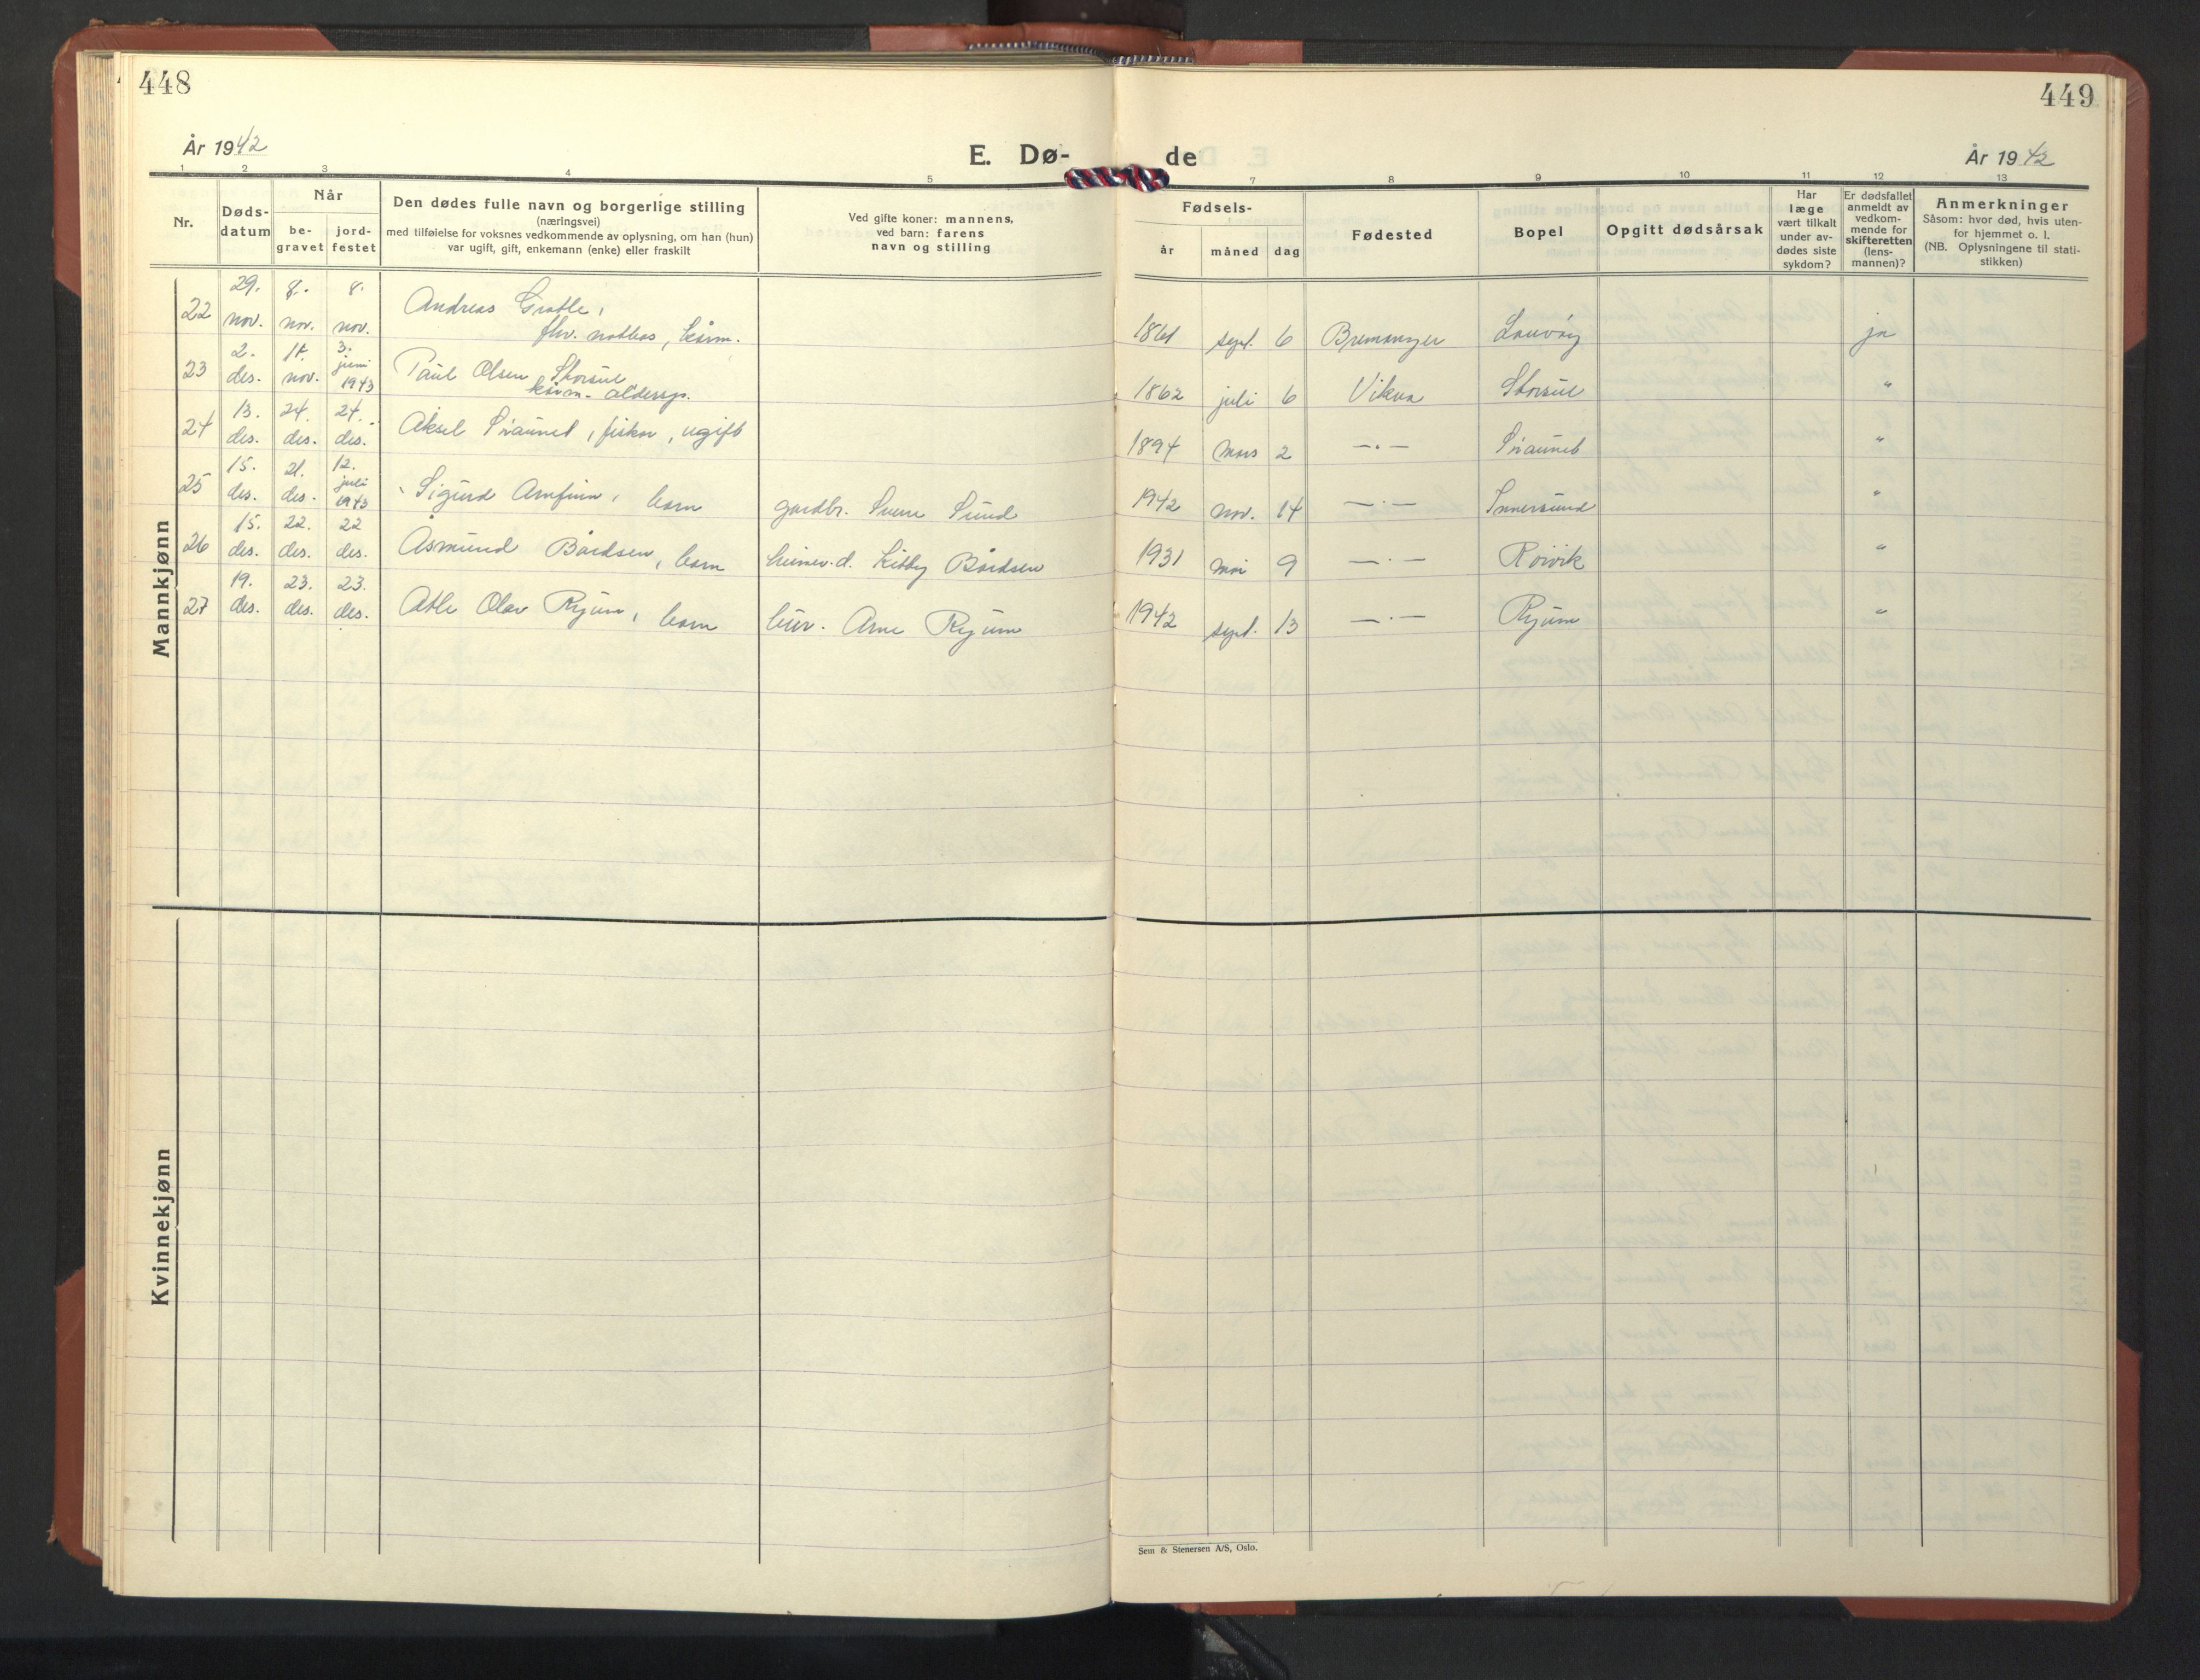 448
449
År 1942
E. Dø-
de
År 1942
1 2 3 4 5 7 8 9 10 11 12 13
Nr.
Døds-
datum
Når
be-
gravet
jord-
festet
Den dødes fulle navn og borgerlige stilling
(næringsvei)
med tilføielse for voksnes vedkommende av oplysning, om han (hun)
var ugift, gift, enkemann (enke) eller fraskilt
Ved gifte koner: mannens,
ved barn: farens
navn og stilling
Fødsels-
år
måned
dag
Fødested
Bopel
Opgitt dødsårsak
Har
læge
vært tilkalt
under av-
dødes siste
sykdom?
Er dødsfallet
anmeldt av
vedkom-
mende for
skifteretten
(lens-
mannen)?
Anmerkninger
Såsom: hvor død, hvis uten-
for hjemmet o. l.
(NB. Oplysningene til stati-
stikken)
Mannkjønn
22 29. nov. 8. nov. 8. nov. Andreas
1861 sept. 6 Bremanger Lauvøy ja
23 2. des. nov. 3. juni 1943 Paul Olsen Storsul
aldersp.
1862 juli 6 Vikna Storsul "
24 13. des. 24. des. 24. des. Aksel , fisker, ugift
1894 mars 2 —·— "
25 15. des. 21. des. 12. juli 1943 Sigurd Arnfinn, barn gardbr. Sverre Sund
1942 nov. 14 —·— Innersund "
26 15. des. 22. des. 22 des. Åsmund Bårdsen, barn Kitty Bårdsen
1931 mai 9 —·— Rørvik "
27 19. des. 23. des. 23. des. Atle Olav Ryum, barn Arne Ryum
1942 sept. 13 —·— Ryum "
Kvinnekjønn
Sem & Stenersen A/S, Oslo.